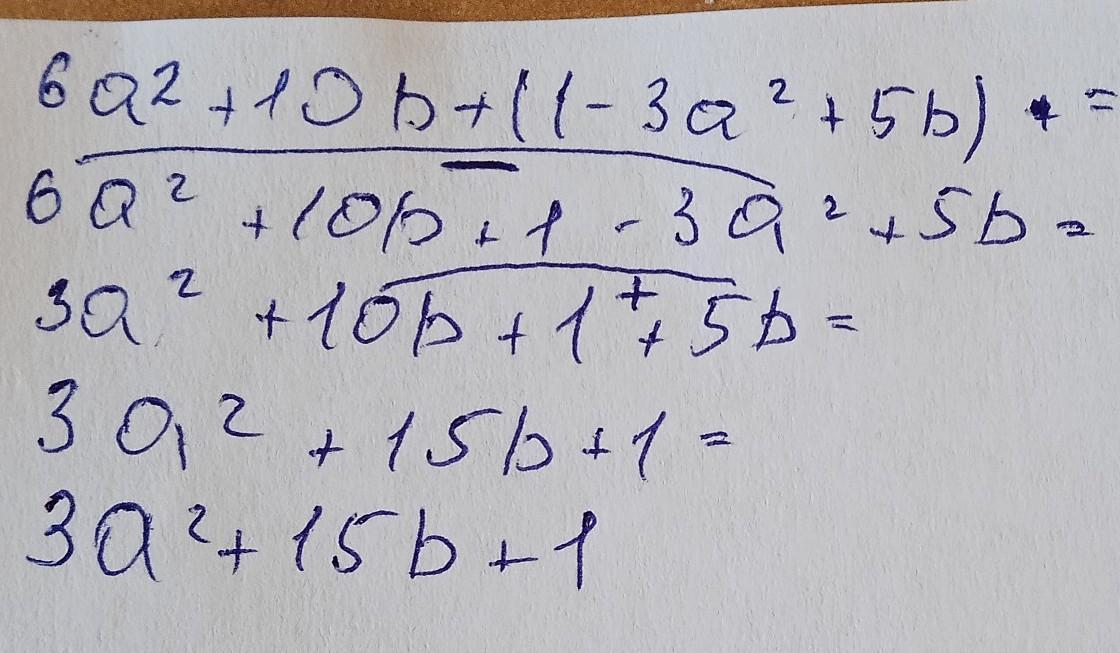 6a² + 10b + (1 - 3a² + 5b) • =
6a² + 10b + 1 - 3a² + 5b =
3a² + 10b + 1 + + 5b =
3a² + 15b + 1 =
3a² + 15b + 1